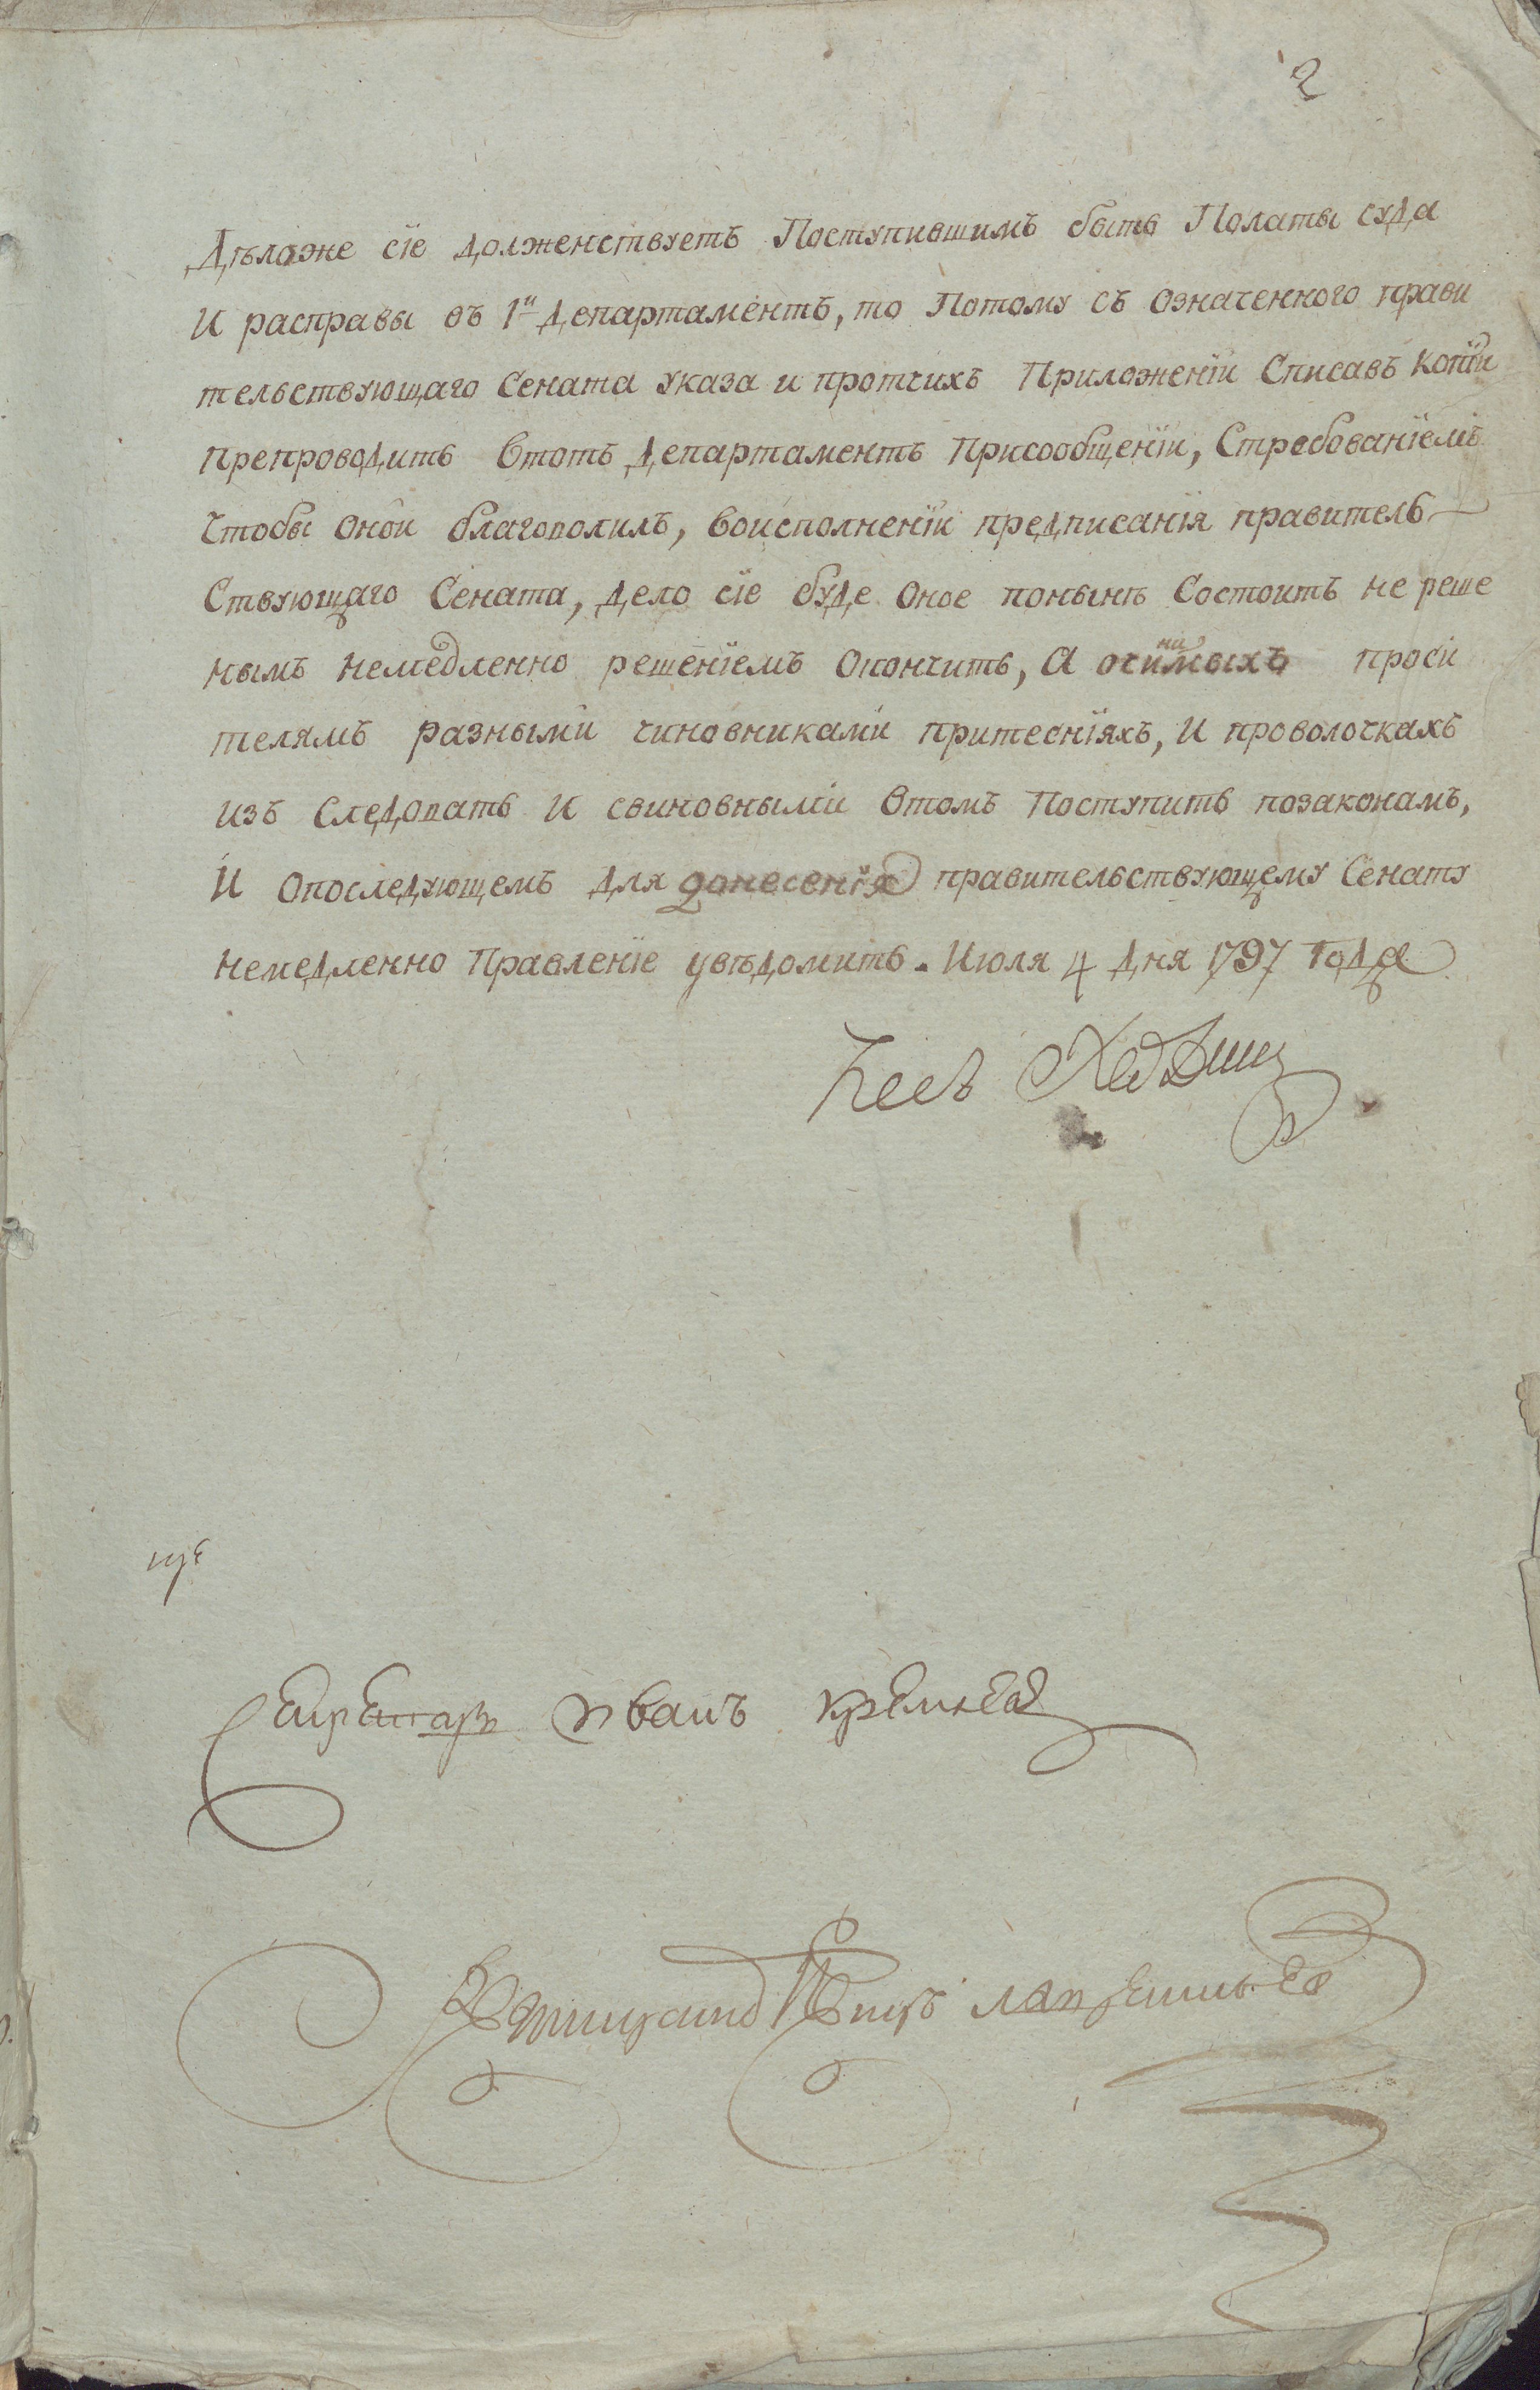 2
Дѣложе сіе долженствуетъ Поступившимъ быть Полаты суда
И расправы въ 1й департаментъ, то Потому съ означенного прави
тельствующаго Сената указа и протчихъ Приложеніи Списавъ копіи
препроводить Втотъ департаментъ Присообщеніи, Стребованіемъ
Чтобы оной благоволилъ, воисполненіи предписанія правитель
Ствующаго Сената, дело сіе буде оное понынѣ Состоитъ не реше
нымъ немедленно решеніемъ Окончить, а очинимыхъ проси
телямъ разными чиновниками притеснїяхъ, и проволочкахъ
изъ Следовать и свиновными Втомъ Поступить позаконамъ,
И Опоследующемъ для донесенія правительствующему Сенату
немедленно Правленіе увѣдомить. Июля 4 дня 1797 года
Секретарь Иванъ Кремнев
Петръ